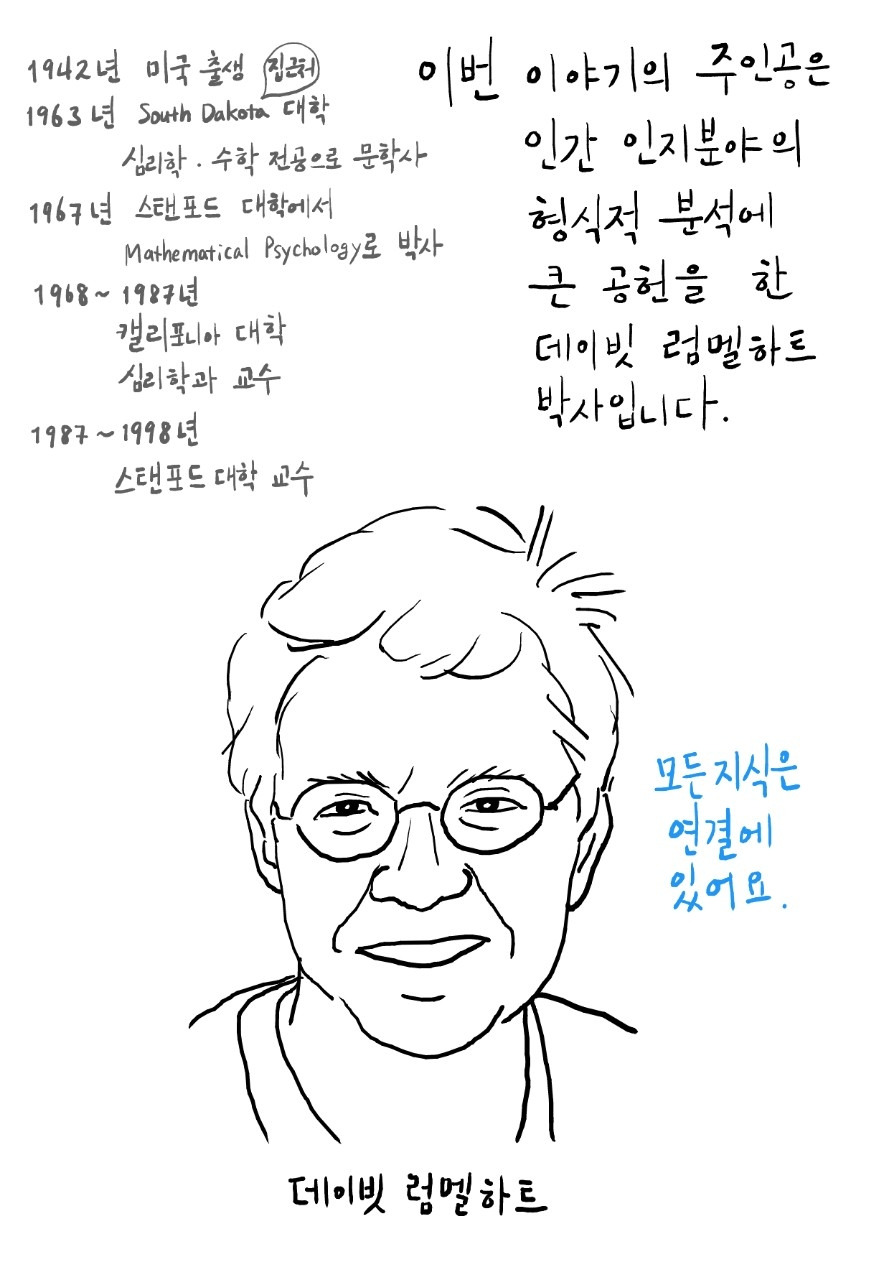 1942년 미국 출생 집근처
1963년 South Dakota 대학
심리학 · 수학 전공으로 문학사
1967년 스탠포드 대학에서
Mathematical Psychology로 박사
1968 ~ 1987년
캘리포니아 대학
심리학과 교수
1987 ~ 1998년
스탠포드 대학 교수
이번 이야기의 주인공은
인간 인지분야의
형식적 분석에
큰 공헌을 한
데이빗 럼멜하트
박사입니다.
모든 지식은
연결에
있어요.
데이빗 럼멜하트